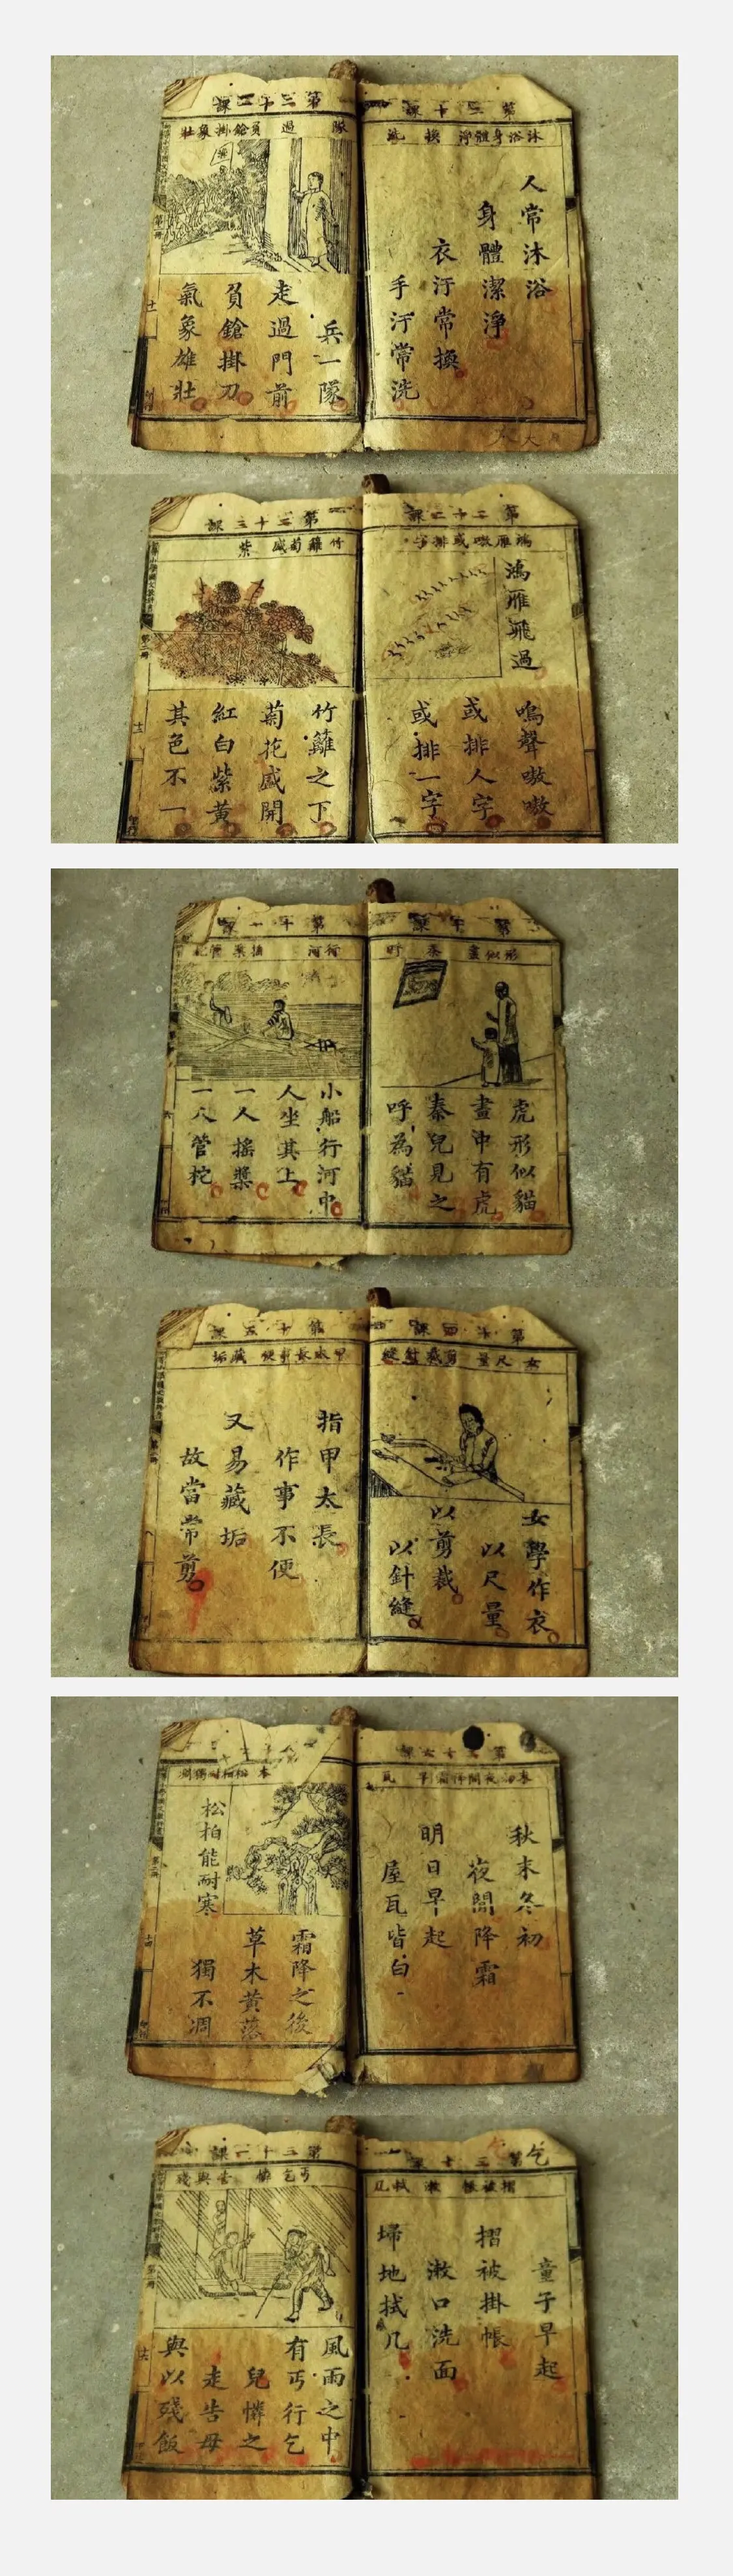 第二十課
沐浴身體淨 換 洗
人常沐浴
身體潔淨
衣汙常換
手汙常洗
隊 過 負鎗掛象壯
兵一隊
走過門前
負鎗掛刀
氣象雄壯
第二十二課
鴻雁嗷或排字
鴻雁飛過
鳴聲嗷嗷
或排人字
或排一字
第二十三課
竹籬菊盛 紫
竹籬之下
菊花盛開
紅白紫黃
其色不一
第十課
形似畫 秦 呼
虎形似貓
畫中有虎
秦兒見之
呼為貓
第十一課
行河 搖槳管柁
小船行河中
人坐其上
一人搖槳
一人管柁
第十四課
女 尺量 剪裁針縫
女學作衣
以尺量
以剪裁
以針縫
第十五課
甲太長事便 藏垢
指甲太長
作事不便
又易藏垢
故當常剪
秋末冬初
夜間降霜
明日早起
屋瓦皆白
霜降之後
草木黃落
松柏能耐寒
獨不凋
乞
摺被帳 漱 拭几
童子早起
摺被掛帳
漱口洗面
埽地拭几
丐乞憐 告與殘
風雨之中
有丐行乞
兒憐之
走告母
與以殘飯